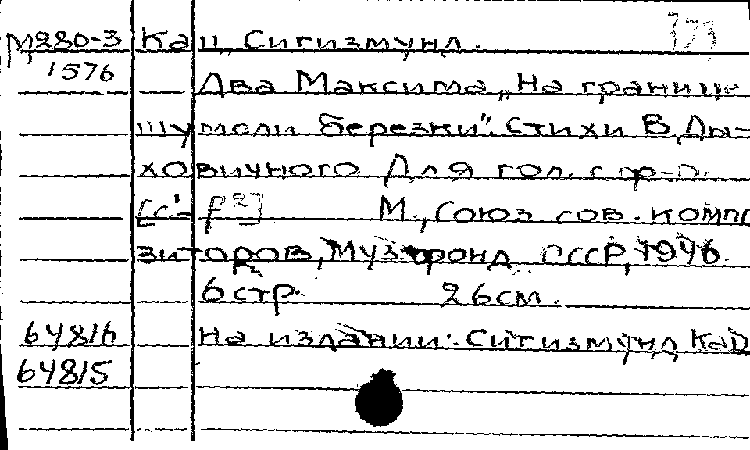 М280-3 Кац, Сигизмунд. 173
1576 Два Максима „На границе
шумели березки". Стихи В. Ды-
ховичного Для гол. с ф-п.
[c¹- f²] М., Союз сов. компо
зиторов, Музфонд СССР, 1946.
6 стр. 26 см.
64816 На издании: Сигизмунд Кац
64815